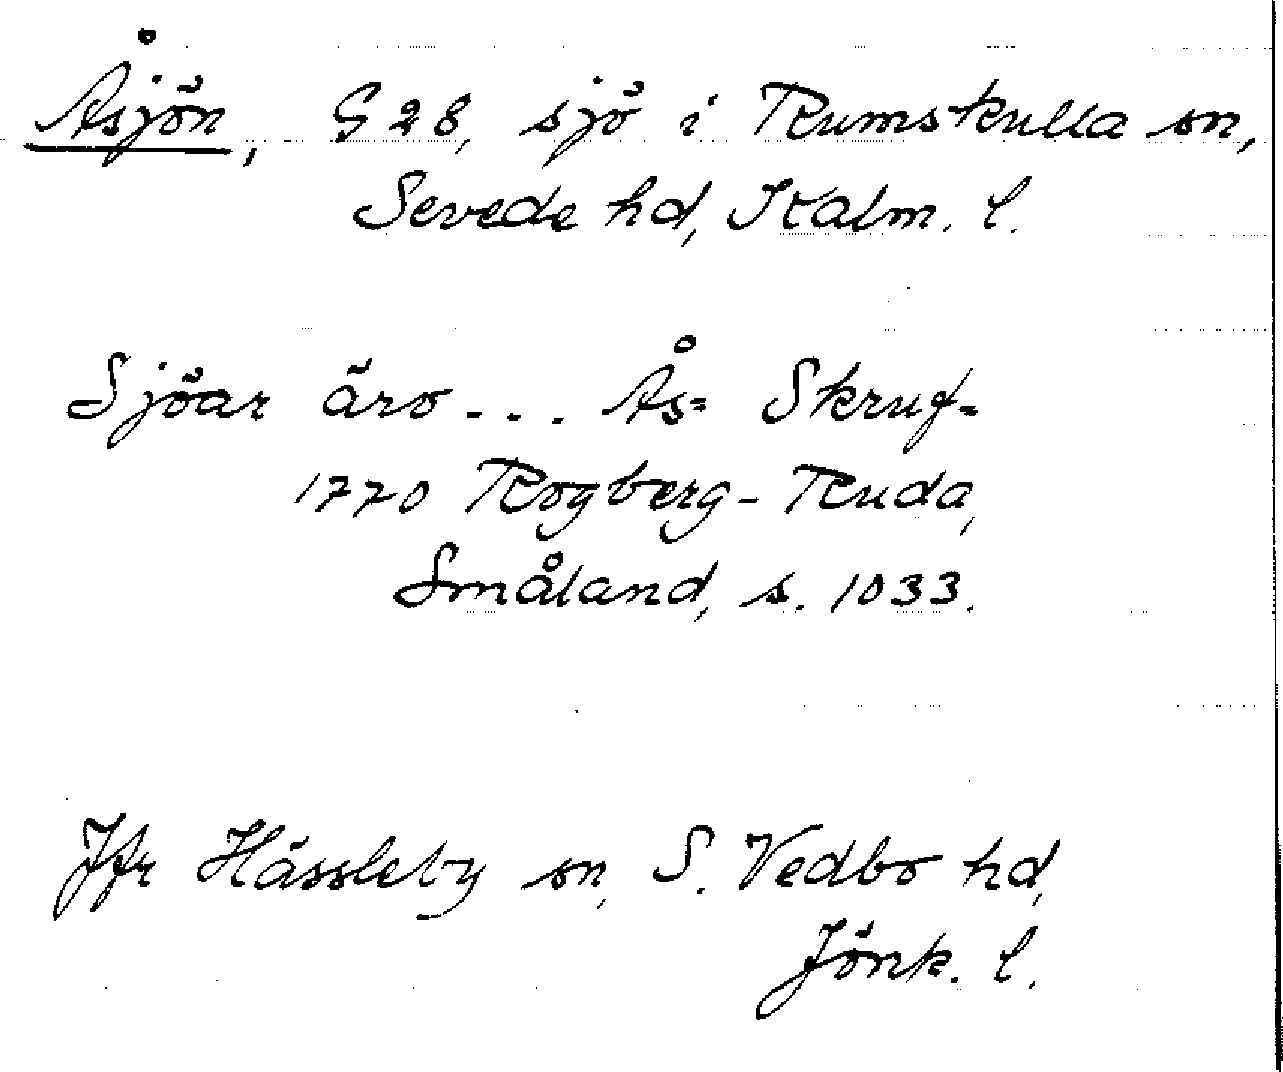 Åsjön, G 28, sjö i Rumskulla sn,
Sevede hd, Kalm. l.
Sjöar äro... Ås= Skruf-
1770 Rogberg-Ruda,
Småland, s. 1033.
Jfr Hässleby sn, S. Vedbo hd,
Jönk. l.